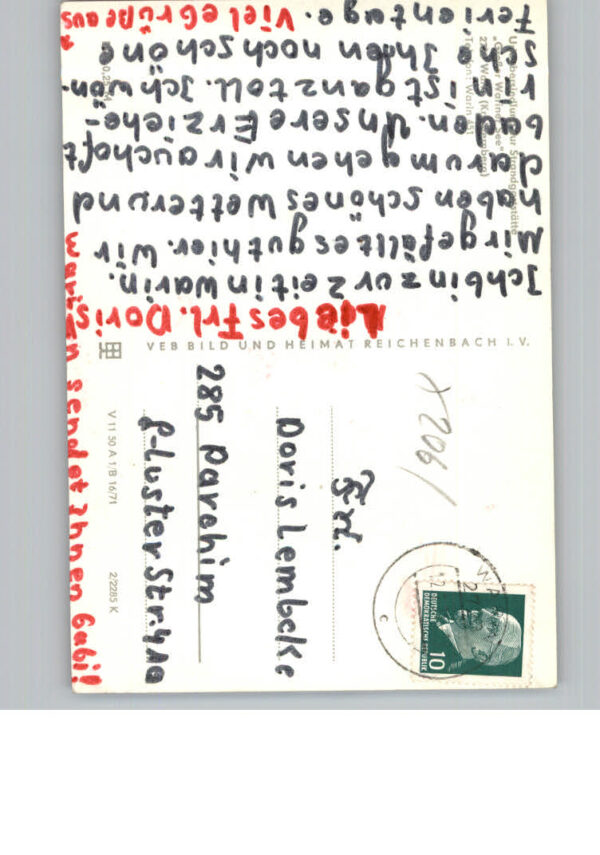 Liebes Frl. Doris!
Ich bin zur Zeit in Warin.
Mir gefällt es gut hier. Wir
haben schönes Wetter und
darum gehen wir auch oft
baden. Unsere Erziehe-
rin ist ganz toll. Ich wün-
sche Ihnen noch schöne
Ferientage. Viele Grüße aus
Warin sendet Ihnen Gabi!
VEB BILD UND HEIMAT REICHENBACH I. V.
V 11 50 A 1/B 16/71
2/2285 K
Frl.
Doris Lembcke
285 Parchim
Str.
DEUTSCHE
DEMOKRATISCHE REPUBLIK
10